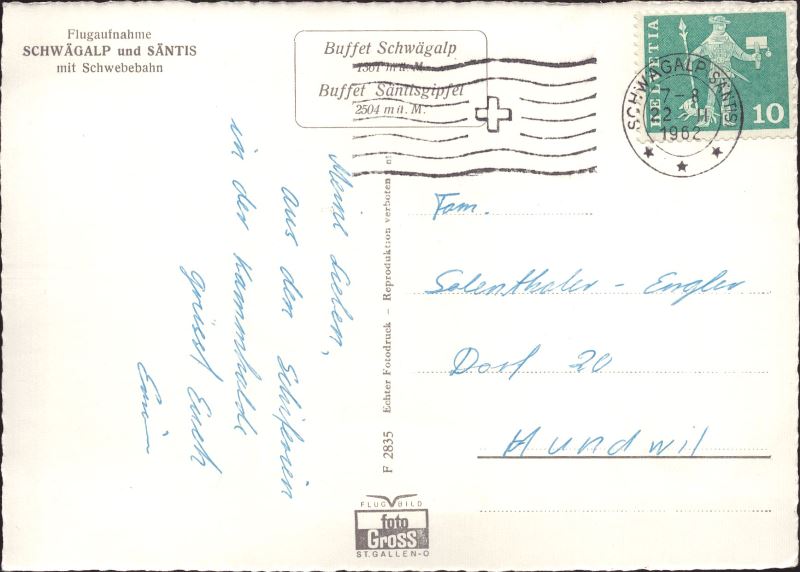 Flugaufnahme
SCHWÄGALP und SÄNTIS
mit Schwebebahn
Buffet Schwägalp
1361 m ü. M.
Buffet Säntisgipfel
2504 m ü. M.
HELVETIA
10
SCHWÄGALP-SÄNTIS
1962
Meine Lieben,
aus den Schiferien
in der Kammhalde
grüsst Euch
Fam.
Solenthaler - Engler
Dorf 20
Hundwil
F 2835 Echter Fotodruck – Reproduktion verboten
FLUGBILD
foto
Gross
ST. GALLEN-O